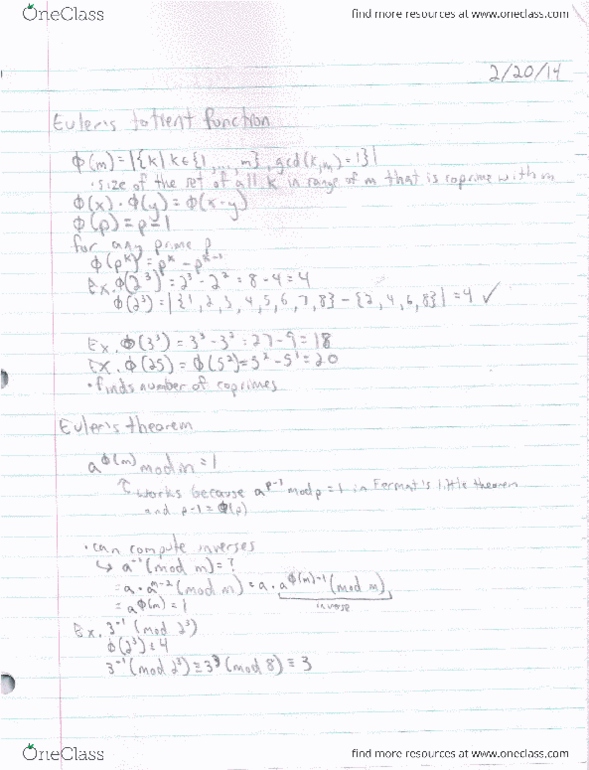 OneClass
find more resources at www.oneclass.com
2/20/14
Euler's totient function
ϕ(m) = |{k | k ∈ {1, ..., m}, gcd(k,m) = 1}|
• size of the set of all k in range of m that is coprime with m
ϕ(x) · ϕ(y) = ϕ(x·y)
ϕ(p) = p-1
for any prime p
ϕ(p^k) = p^k - p^(k-1)
Ex. ϕ(2^3) = 2^3 - 2^2 = 8 - 4 = 4
ϕ(2^3) = |{1, 2, 3, 4, 5, 6, 7, 8} - {2, 4, 6, 8}| = 4 ✓
Ex. ϕ(3^3) = 3^3 - 3^2 = 27 - 9 = 18
Ex. ϕ(25) = ϕ(5^2) = 5^2 - 5^1 = 20
• finds number of coprimes
Euler's theorem
a^ϕ(m) mod m = 1
↑ works because a^(p-1) mod p = 1 in Fermat's little theorem
and p-1 = ϕ(p)
• can compute inverses
↳ a^-1 (mod m) = ?
= a · a^(m-2) (mod m) = a · a^(ϕ(m)-1) (mod m)
inverse
= a^ϕ(m) = 1
Ex. 3^-1 (mod 2^3)
ϕ(2^3) = 4
3^-1 (mod 2^3) ≡ 3^3 (mod 8) ≡ 3
OneClass
find more resources at www.oneclass.com